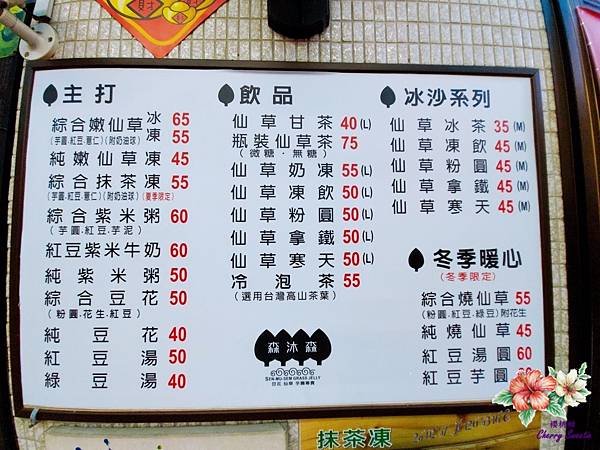 主打
綜合嫩仙草冰 65
凍 55
(芋圓.紅豆.薏仁)(附奶油球)
純嫩仙草凍 45
綜合抹茶凍 55
(芋圓.紅豆.薏仁)(附奶油球)(夏季限定)
綜合紫米粥 60
(芋圓.紅豆.芋泥)
紅豆紫米牛奶 60
純紫米粥 50
綜合豆花 50
(粉圓.花生.紅豆)
純豆花 40
紅豆湯 50
綠豆湯 40
飲品
仙草甘茶 40(L)
瓶裝仙草茶 75
(微糖.無糖)
仙草奶凍 55(L)
仙草凍飲 50(L)
仙草粉圓 50(L)
仙草拿鐵 50(L)
仙草寒天 50(L)
冷泡茶 55
(選用台灣高山茶葉)
森沐森
SEN-MU-SEN GRASS JELLY
豆花 仙草 芋圓專賣
冰沙系列
仙草冰茶 35(M)
仙草凍飲 45(M)
仙草粉圓 45(M)
仙草拿鐵 45(M)
仙草寒天 45(M)
冬季暖心
(冬季限定)
綜合燒仙草 55
(粉圓.紅豆.綠豆)附花生
純燒仙草 45
紅豆湯圓 60
紅豆芋圓
抹茶凍
櫻桃
Cherry Sweetie